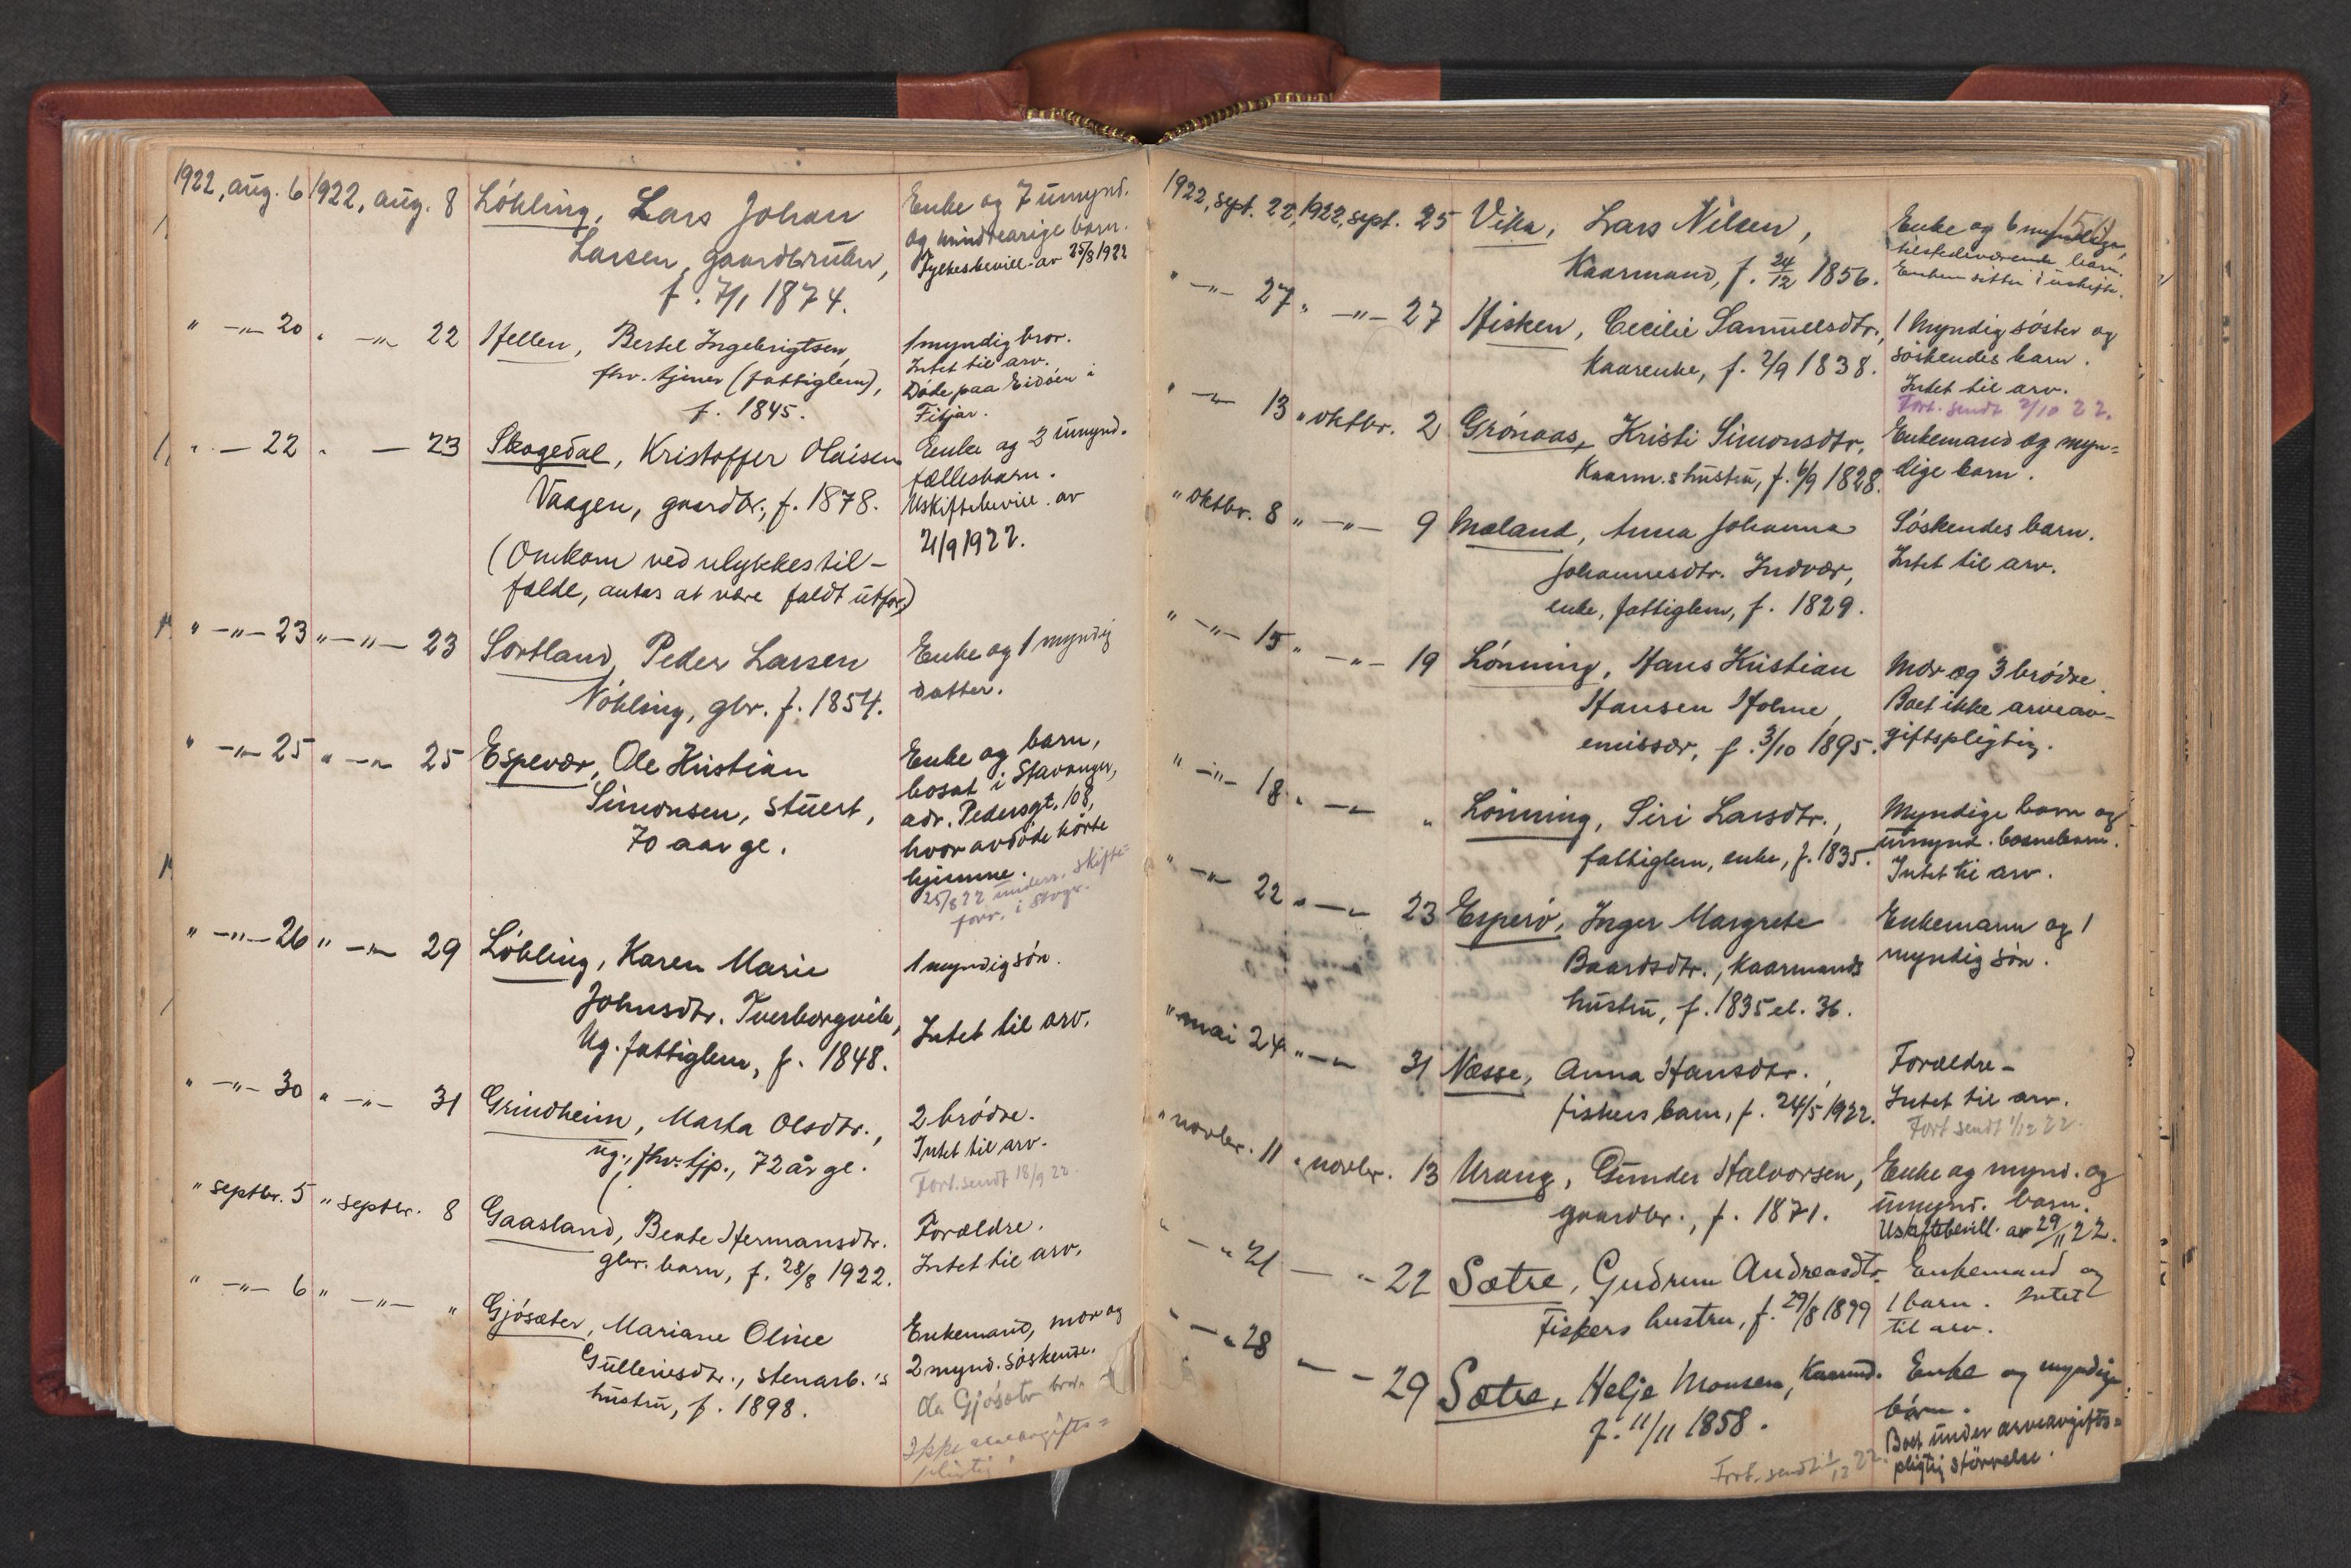 1922, aug. 6 1922, aug. 8 Løkling, Lars Johan Enke og 7 umynd.
Larsen, gaardbruker, og mindreaarige barn.
f. 7/1 1874. Fylkesbevill. av 25/8 1922
" -"- 20 " -"- 22 Hellen, Bertel Ingebrigtsen, 1 myndig bror.
fhv. tjener (fattiglem), Intet til arv.
f. 1845. Døde paa Eidøen i
Fitjar.
" - 22 " - 23 Skogedal, Kristoffer Olaisen Enke og 3 umynd.
Vaagen, gaardbr., f. 1878. fællesbarn.
(Omkom ved ulykkestil- Uskiftebevill. av
fælde, antas at være faldt utfor) 21/9 1922.
" -"- 23 " -"- 23 Sortland, Peder Larsen Enke og 1 myndig
Nökling, gbr. f. 1854. datter.
" -"- 25 " -"- 25 Espevær, Ole Kristian Enke og barn,
Simonsen, stuert, bosat i Stavanger,
70 aar gl. adr. Pedersgt. 108,
hvor avdøde hørte
hjemme.
25/8 22 underr. skifte-
forv. i Stvgr.
" -"- 26 " -"- 29 Løkling, Karen Marie 1 myndig søn.
Johnsdtr. Tverborgvik, Intet til arv.
Ug. fattiglem, f. 1848.
" -"- 30 " -"- 31 Grindheim, Marta Olsdtr., 2 brødre.
ug., fhv. tjp., 72 år gl. Intet til arv.
Fort. sendt 18/9 22.
" septbr. 5 " septbr. 8 Gaasland, Beate Hermansdtr. Forældre.
gbr. barn, f. 28/8 1922. Intet til arv.
" -"- 6 " -"- " Gjøsæter, Mariane Oline Enkemand, mor og
Gulleivsdtr., stenarb.'s 2 mynd. søskende.
hustru, f. 1898. Ola Gjøsæter bror
Ikke arveavgifts-
pligtig!
1922, sept. 22, 1922, sept. 25 Vika, Lars Nilsen, Enke og 6 myndige,
Kaarmand, f. 24/12 1856. tilstedeværende barn.
Enken sitter i uskifte.
" -"- 27 " -"- 27 Hisken, Cecilie Samuelsdtr., 1 myndig søster og
Kaarenke, f. 2/9 1838. søskendes barn.
Intet til arv.
Fort. sendt 2/10 22.
" -"- 13 " oktbr. 2 Grønaas, Kristi Simonsdtr., Enkemand og myn-
Kaarm.s hustru, f. 6/9 1828. dige barn.
" oktbr. 8 " -"- 9 Mæland, Anna Johanna Søskendes barn.
Johannesdtr. Indvær, Intet til arv.
enke, fattiglem, f. 1829.
" -"- 15 " -"- 19 Lønning, Hans Kristian Mor og 3 brødre.
Hansen Holme, Boet ikke arveav-
emissær, f. 3/10 1895. giftspligtig.
" -"- 18 " -"- " Lønning, Siri Larsdtr., Myndige barn og
fattiglem, enke, f. 1835. umynd. barnebarn.
Intet til arv.
" -"- 22 " -"- 23 Esperø, Inger Margrete Enkemann og 1
Baardsdtr., Kaarmands myndig søn.
hustru, f. 1835 el. 36.
" mai 24 " -"- 31 Næsse, Anna Hansdtr., Forældre-
fiskers barn, f. 24/5 1922. Intet til arv.
Fort sendt 1/12 22.
" novbr. 11 " novbr. 13 Urang, Gunder Halvorsen, Enke og mynd. og
gaardbr., f. 1871. umynd. barn.
Uskiftebevill. av 29/11 22.
" - " 21 - " - 22 Sætre, Gudrun Andreasdtr. Enkemand og
Fiskers hustru, f. 29/8 1899 1 barn. Intet
til arv.
" - " 28 - - 29 Sætre, Helje Monsen, Kaarmd. Enke og myndige
f. 11/11 1858. børn.
Boet under arveavgifts-
Fort. sendt 1/12 22. pligtig størrelse.